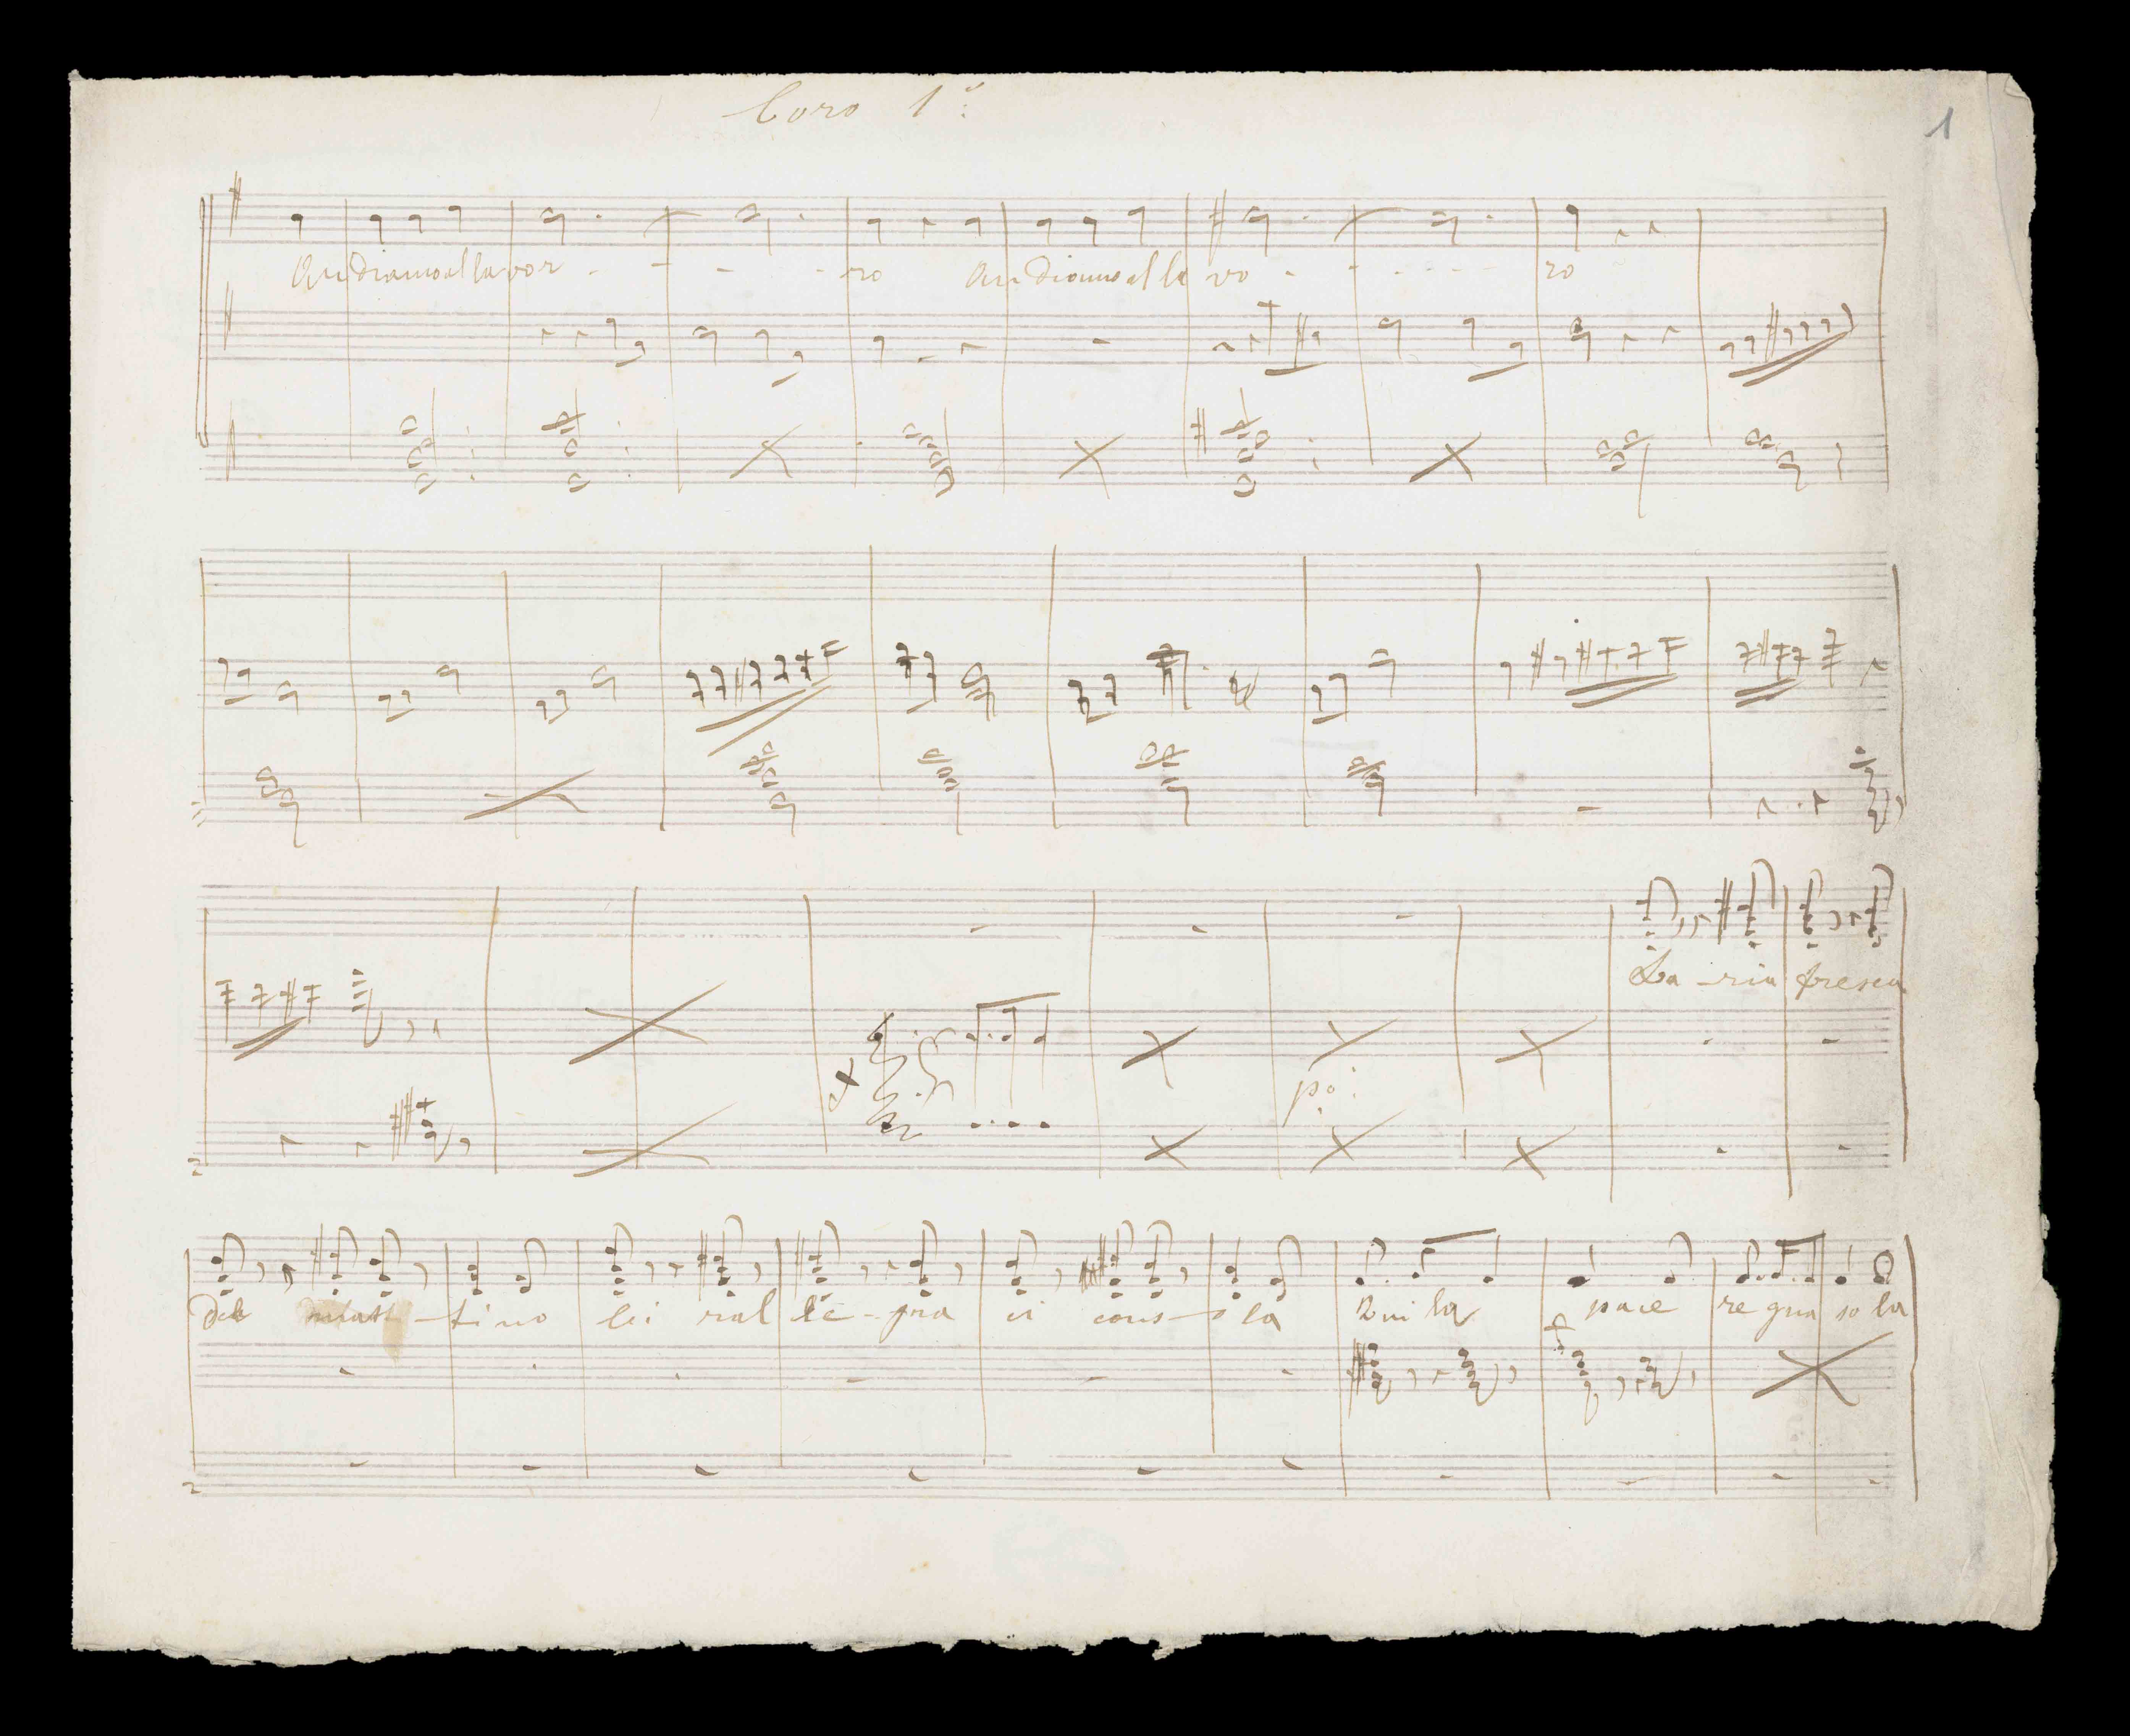 Coro 1º
1
Andiamo al lavor - - - - ro Andiamo al la vo - - - - - ro
po:
L'a - ria fresca
del matt - ti no ci ral le - gra ci cons - o la Qui la pace re gna so la